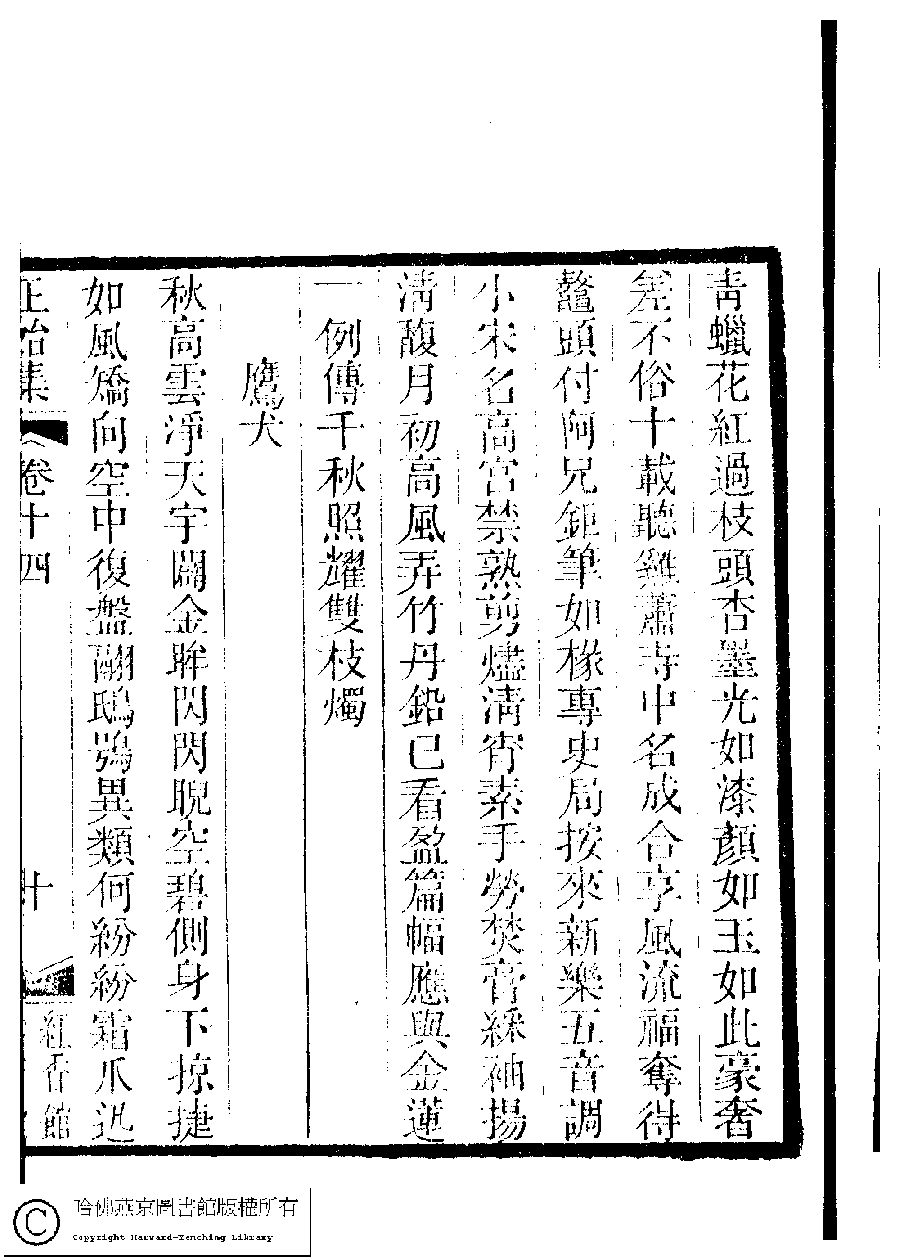 青蠟花紅過枝頭杏墨光如漆顏如玉如此豪奢
差不俗十載聽雞蕭寺中名成合享風流福奪得
鼇頭付阿兄鉅筆如椽專史局按來新樂五音調
小宋名高宮禁熟剪燼清宵素手勞焚膏綵袖揚
淸馥月初高風弄竹丹鉛已看盈篇幅應與金蓮
一例傳千秋照耀雙枝燭
鷹犬
秋高雲淨天宇闊金眸閃閃睨空碧側身下掠捷
如風矯向空中復盤翮鴟鴞異類何紛紛霜爪迅
正始集 卷十四 十 紅香館
哈佛燕京圖書館版權所有
Copyright Harvard-Yenching Library